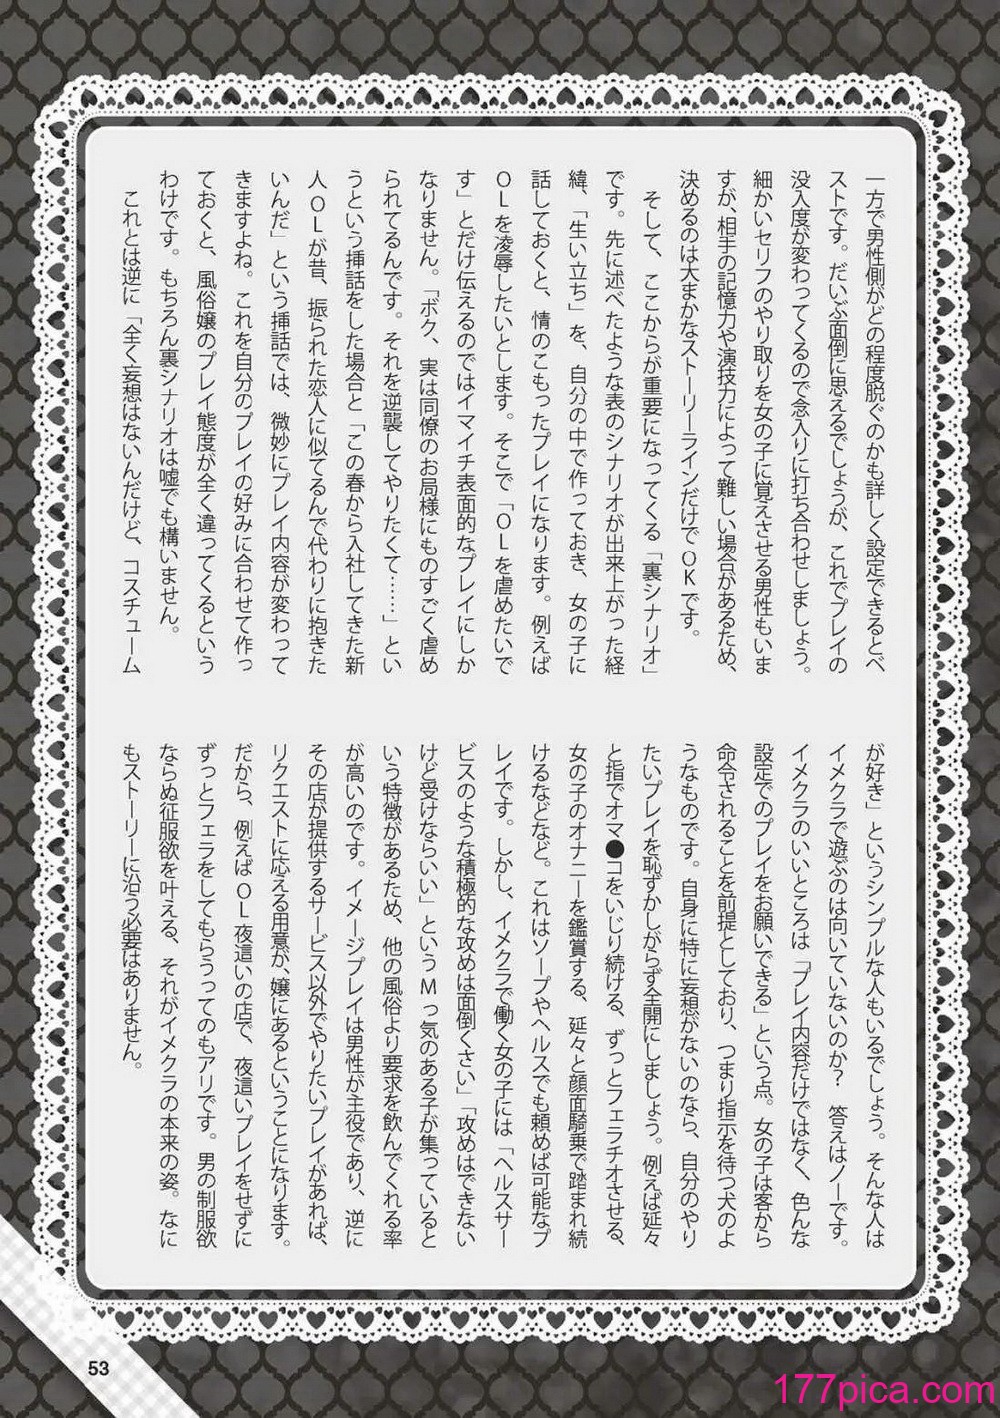 一方で男性側がどの程度脱ぐのかも詳しく設定できるとベ
ストです。だいぶ面倒に思えるでしょうが、これでプレイの
没入度が変わってくるので念入りに打ち合わせしましょう。
細かいセリフのやり取りを女の子に覚えさせる男性もいま
すが、相手の記憶力や演技力によって難しい場合があるため、
決めるのは大まかなストーリーラインだけでOKです。
そして、ここからが重要になってくる「裏シナリオ」
です。先に述べたような表のシナリオが出来上がった経
緯、「生い立ち」を、自分の中で作っておき、女の子に
話しておくと、情のこもったプレイになります。例えば
OLを凌辱したいとします。そこで「OLを虐めたいで
す」とだけ伝えるのではイマイチ表面的なプレイにしか
なりません。「ボク、実は同僚のお局様にものすごく虐め
られてるんです。それを逆襲してやりたくて……」とい
うという挿話をした場合と「この春から入社してきた新
人OLが昔、振られた恋人に似てるんで代わりに抱きた
いんだ」という挿話では、微妙にプレイ内容が変わって
きますよね。これを自分のプレイの好みに合わせて作っ
ておくと、風俗嬢のプレイ態度が全く違ってくるという
わけです。もちろん裏シナリオは嘘でも構いません。
これとは逆に「全く妄想はないんだけど、コスチューム
が好き」というシンプルな人もいるでしょう。そんな人は
イメクラで遊ぶのは向いていないのか？　答えはノーです。
イメクラのいいところは「プレイ内容だけではなく、色んな
設定でのプレイをお願いできる」という点。女の子は客から
命令されることを前提としており、つまり指示を待つ犬のよ
うなものです。自身に特に妄想がないのなら、自分のやり
たいプレイを恥ずかしがらず全開にしましょう。例えば延々
と指でオマ●コをいじり続ける、ずっとフェラチオさせる、
女の子のオナニーを鑑賞する、延々と顔面騎乗で踏まれ続
けるなどなど。これはソープやヘルスでも頼めば可能なプ
レイです。しかし、イメクラで働く女の子には「ヘルスサー
ビスのような積極的な攻めは面倒くさい」「攻めはできない
けど受けならいい」というMっ気のある子が集っていると
いう特徴があるため、他の風俗より要求を飲んでくれる率
が高いのです。イメージプレイは男性が主役であり、逆に
その店が提供するサービス以外でやりたいプレイがあれば、
リクエストに応える用意が、嬢にあるということになります。
だから、例えばOL夜這いの店で、夜這いプレイをせずに
ずっとフェラをしてもらうってのもアリです。男の制服欲
ならぬ征服欲を叶える、それがイメクラの本来の姿。なに
もストーリーに沿う必要はありません。
53
177pica.com